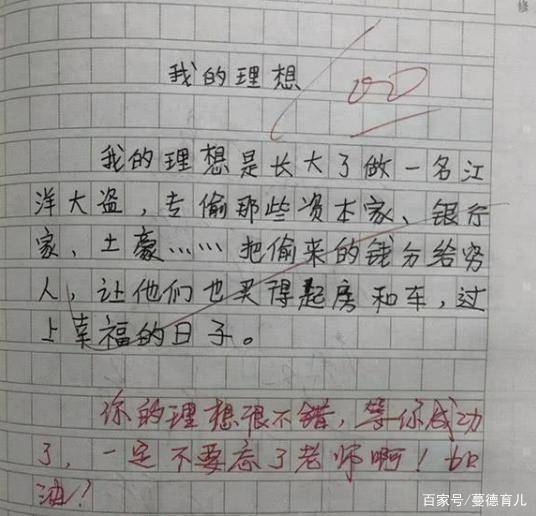 修
我的理想
我的理想是长大了做一名江
洋大盗，专偷那些资本家、银行
家、土豪……把偷来的钱分给穷
人，让他们也买得起房和车，过
上幸福的日子。
你的理想很不错，等你成功
了，一定不要忘了老师啊！加
油！
百家号/蔓德育儿